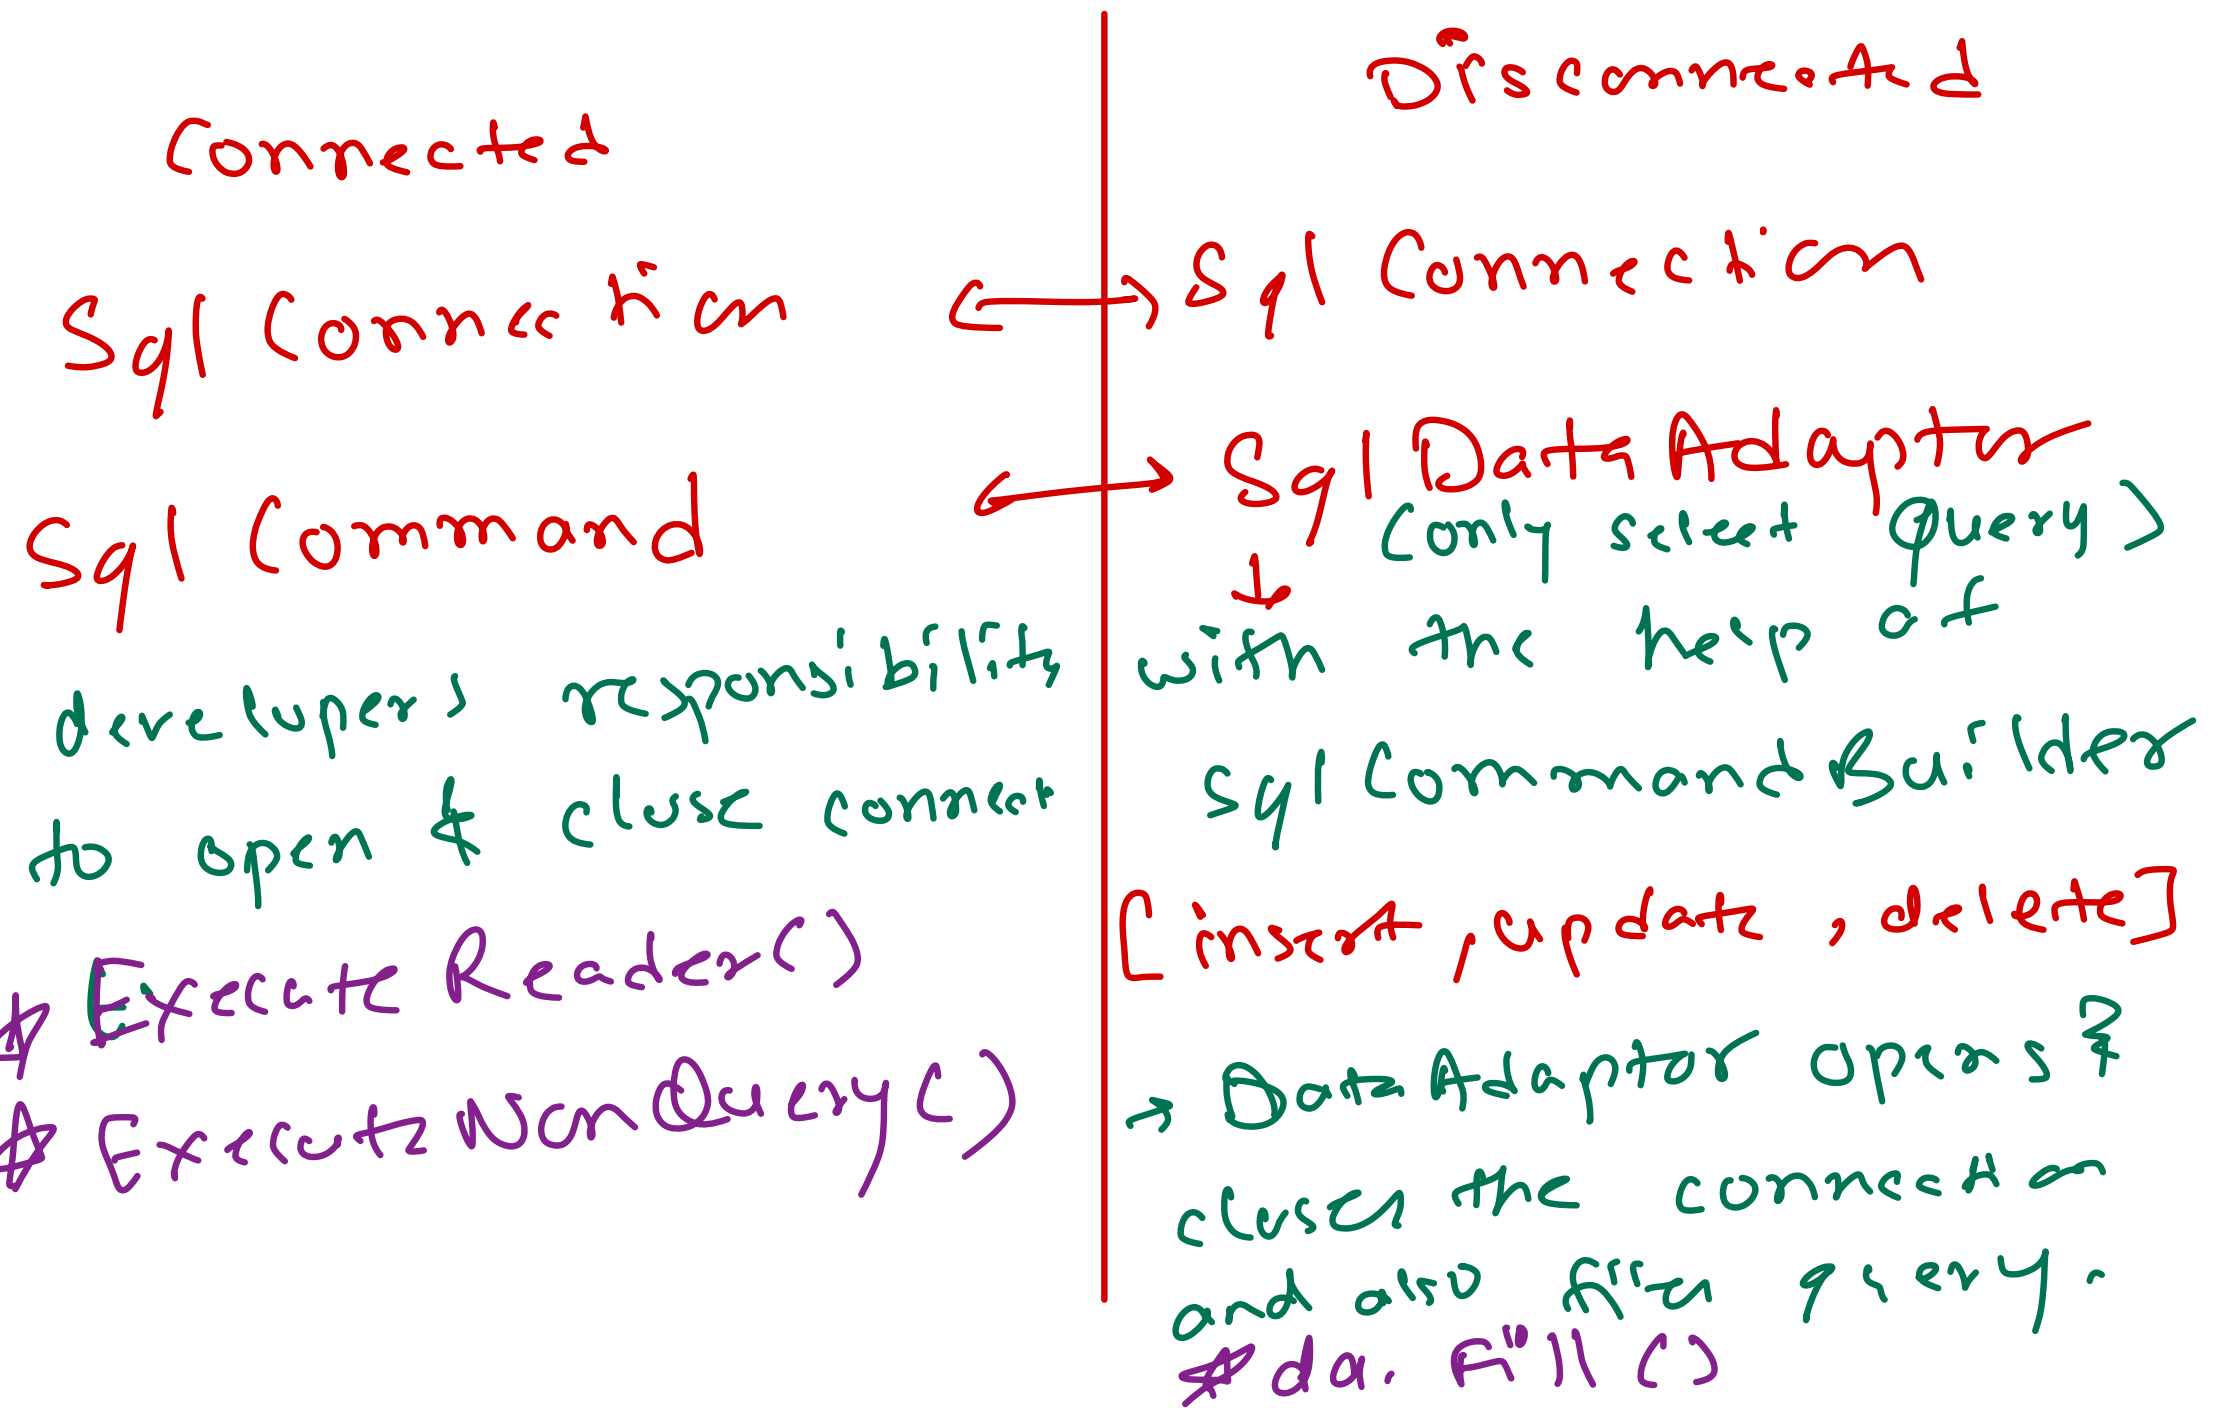 Connected
Sql Connection
Sql Command
developers responsibility
to open & close connect
* ExecuteReader()
* ExecuteNonQuery()
Disconnected
↔ Sql Connection
↔ Sql DataAdaptor
(only select Query)
↓
with the help of
sql CommandBuilder
[insert, update, delete]
→ DataAdaptor opens &
closes the connection
and also fires query.
* da.Fill()